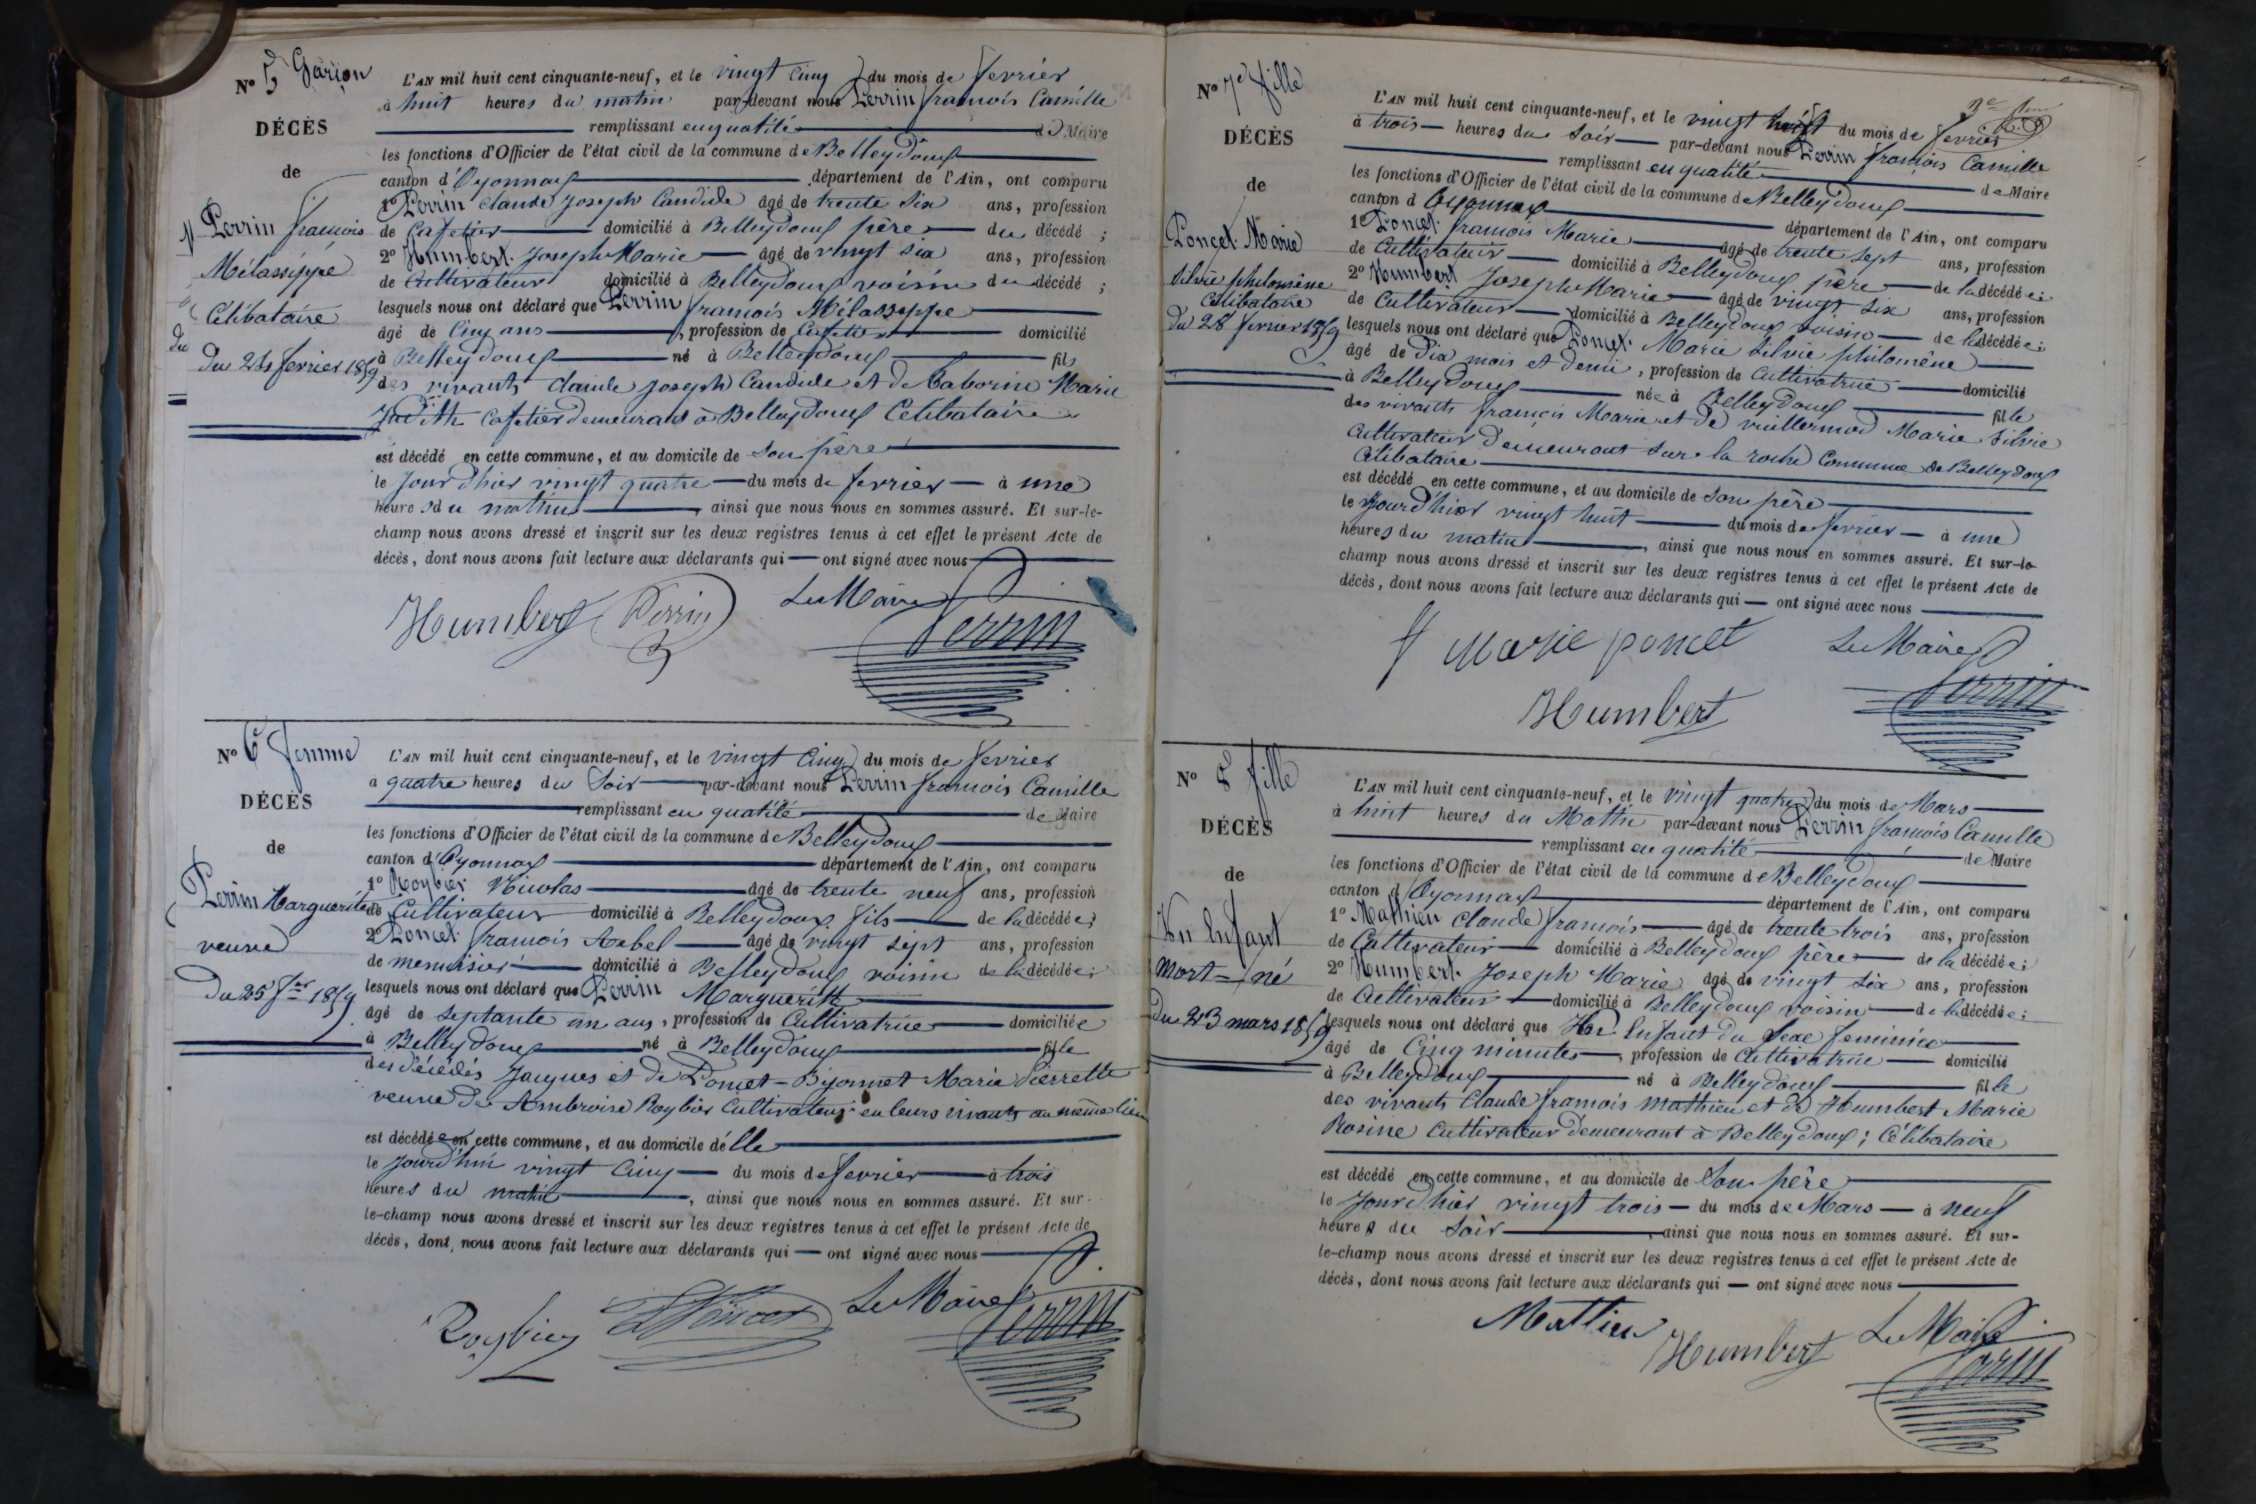 No 5 Garçon
DÉCÈS
de
Perrin françois
Mélassippe
Célibataire
du
Du 24 fevrier 1859
L'AN mil huit cent cinquante-neuf, et le vingt cinq du mois de fevrier
à huit heures du matin par-devant nous Perrin françois Camille
remplissant en qualité de Maire
les fonctions d'Officier de l'état civil de la commune de Belleydoux
canton d'Oyonnax département de l'Ain, ont comparu
1o Perrin Claude Joseph Candide âgé de trente six ans, profession
de Cafetier domicilié à Belleydoux père du décédé ;
2o Humbert Joseph Marie âgé de vingt six ans, profession
de Cultivateur domicilié à Belleydoux voisin du décédé ;
lesquels nous ont déclaré que Perrin françois Mélassippe
âgé de Cinq ans, profession de Cafetier domicilié
à Belleydoux né à Belleydoux fils
des vivants Claude Joseph Candide et de Taborin Marie
Judith Cafetier demeurant à Belleydoux Célibataire
est décédé en cette commune, et au domicile de son père
le Jourd'hier vingt quatre du mois de fevrier à une
heures du matin, ainsi que nous nous en sommes assuré. Et sur-le-
champ nous avons dressé et inscrit sur les deux registres tenus à cet effet le présent Acte de
décès, dont nous avons fait lecture aux déclarants qui ont signé avec nous
Humbert Perrin Le Maire Perrin
No 6e femme
DÉCÈS
de
Perrin Marguerite
veuve
Du 25 fer 1859
L'AN mil huit cent cinquante-neuf, et le vingt cinq du mois de fevrier
à quatre heures du Soir par-devant nous Perrin françois Camille
remplissant en qualité de Maire
les fonctions d'Officier de l'état civil de la commune de Belleydoux
canton d'Oyonnax département de l'Ain, ont comparu
1o Roybier Nicolas âgé de trente neuf ans, profession
de Cultivateur domicilié à Belleydoux fils de la décédée ;
2o Poncet françois Abel âgé de vingt sept ans, profession
de menuisier domicilié à Belleydoux voisin de la décédée ;
lesquels nous ont déclaré que Perrin Margueritte
âgé de septante un ans, profession de Cultivatrice domiciliée
à Belleydoux né à Belleydoux fille
des décédés Jacques et de Poncet-Bijonnet Marie Pierrette
veuve de Ambroise Roybier Cultivateurs en leurs vivants au même lieu
est décédée en cette commune, et au domicile d'elle
le Jourd'hui vingt Cinq du mois de fevrier à trois
heures du matin, ainsi que nous nous en sommes assuré. Et sur-
le-champ nous avons dressé et inscrit sur les deux registres tenus à cet effet le présent Acte de
décès, dont nous avons fait lecture aux déclarants qui ont signé avec nous
Roybier Poncet Le Maire Perrin
No 7e fille
DÉCÈS
de
Poncet Marie
Silvie philomène
Célibataire
Du 28 fevrier 1859
L'AN mil huit cent cinquante-neuf, et le vingt huit du mois de fevrier
à trois heures du Soir par-devant nous Perrin françois Camille
remplissant en qualité de Maire
les fonctions d'Officier de l'état civil de la commune de Belleydoux
canton d Oyonnax département de l'Ain, ont comparu
1o Poncet françois Marie âgé de trente sept ans, profession
de Cultivateur domicilié à Belleydoux père de la décédée ;
2o Humbert Joseph Marie âgé de vingt six ans, profession
de Cultivateur domicilié à Belleydoux voisin de la décédée ;
lesquels nous ont déclaré que Poncet Marie Silvie philomène
âgé de Dix mois et demi, profession de Cultivatrice domicilié
à Belleydoux née à Belleydoux fille
des vivants françois Marie et de Vuillermod Marie Silvie
Cultivateur demeurant sur la roche Commune de Belleydoux
Célibataire
est décédé en cette commune, et au domicile de son père
le Jourd'hier vingt huit du mois de fevrier à une
heures du matin, ainsi que nous nous en sommes assuré. Et sur-le-
champ nous avons dressé et inscrit sur les deux registres tenus à cet effet le présent Acte de
décès, dont nous avons fait lecture aux déclarants qui ont signé avec nous
f Marie poncet Le Maire
Humbert Perrin
No 8 fille
DÉCÈS
de
Un Enfant
Mort-né
Du 23 mars 1859
L'AN mil huit cent cinquante-neuf, et le vingt quatre du mois de Mars
à huit heures du Matin par-devant nous Perrin françois Camille
remplissant en qualité de Maire
les fonctions d'Officier de l'état civil de la commune de Belleydoux
canton d Oyonnax département de l'Ain, ont comparu
1o Mathieu Claude françois âgé de trente trois ans, profession
de Cultivateur domicilié à Belleydoux père de la décédée ;
2o Humbert Joseph Marie âgé de vingt six ans, profession
de Cultivateur domicilié à Belleydoux voisin de la décédée ;
lesquels nous ont déclaré que Un Enfant du Sexe feminin
âgé de Cinq minutes, profession de Cultivatrice domicilié
à Belleydoux né à Belleydoux fille
des vivants Claude françois Mathieu et de Humbert Marie
Rosine Cultivateur demeurant à Belleydoux ; Célibataire
est décédé en cette commune, et au domicile de Son père
le Jourd'hier vingt trois du mois de Mars à neuf
heures du Soir, ainsi que nous nous en sommes assuré. Et sur-
le-champ nous avons dressé et inscrit sur les deux registres tenus à cet effet le présent Acte de
décès, dont nous avons fait lecture aux déclarants qui ont signé avec nous
Mathieu Humbert Le Maire Perrin